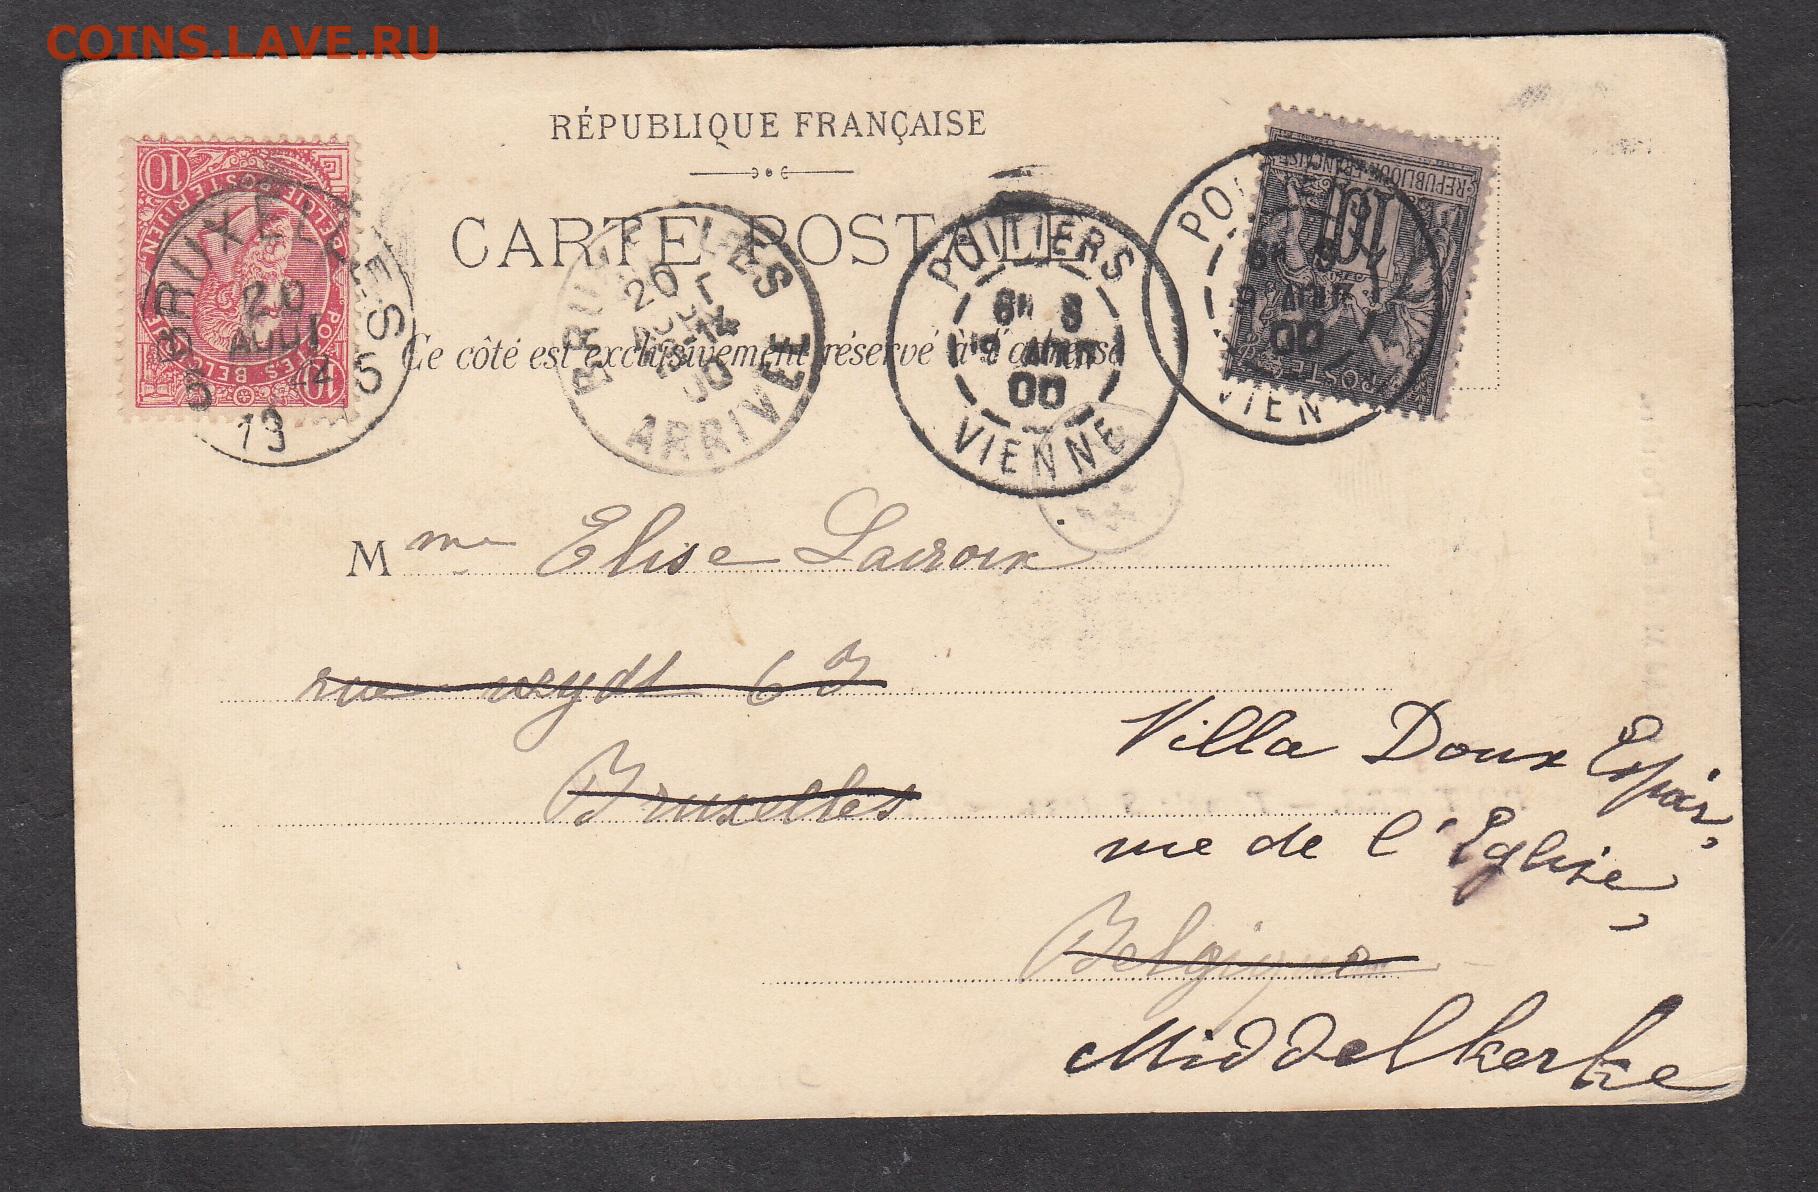 COINS.LAVE.RU
RÉPUBLIQUE FRANÇAISE
CARTE POSTALE
Ce côté est exclusivement réservé à l'adresse
10
POSTES BELGIQUE
BELGIE POSTERIJEN
10
BRUXELLES 5
20
AOUT
12
19
BRUXELLES
20
AOUT
13-14
00
ARRIVEE
POITIERS
VIENNE
00
REPUBLIQUE FRANÇAISE
10
POSTES
POI
00
VIEN
Mme Elise Lacroix
rue veydt 63
Bruxelles
Villa Doux Espoir,
rue de l'Eglise,
Belgique
Middelkerke